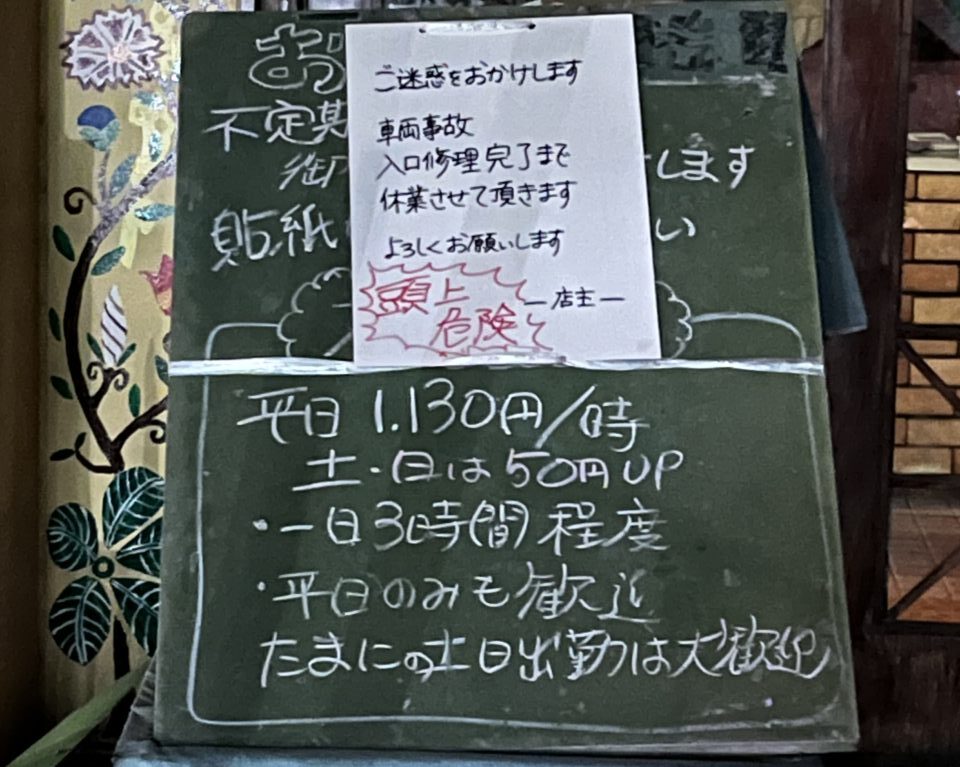 ご迷惑をおかけします
車両事故
入口修理完了まで
休業させて頂きます
よろしくお願いします
頭上
危険
―店主―
不定期
御
します
貼紙
い
平日 1.130円/時
土・日は50円UP
・一日3時間程度
・平日のみも歓迎
たまにの土日出勤は大歓迎